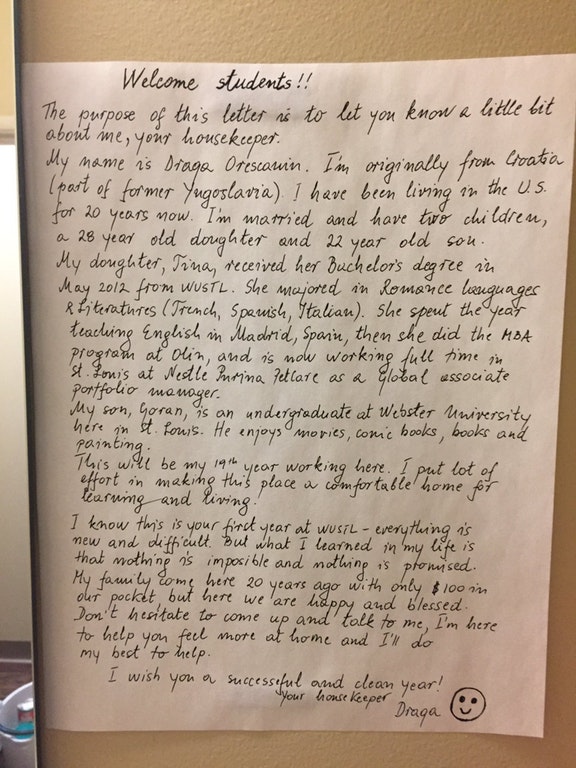 Welcome students!!
The purpose of this letter is to let you know a little bit
about me, your housekeeper.
My name is Draga Orescanin. I'm originally from Croatia
(part of former Yugoslavia). I have been living in the U.S.
for 20 years now. I'm married and have two children,
a 28 year old doughter and 22 year old son.
My doughter, Tina, received her Bachelor's degree in
May 2012 from WUSTL. She majored in Romance languages
& Literatures (French, Spanish, Italian). She spent the year
teaching English in Madrid, Spain, then she did the MBA
program at Olin, and is now working full time in
St. Louis at Nestle Purina Petcare as a Global associate
portfolio manager.
My son, Goran, is an undergraduate at Webster University
here in St. Louis. He enjoys movies, comic books, books and
painting.
This will be my 19th year working here. I put lot of
effort in making this place a comfortable home for
learning and living!
I know this is your first year at WUSTL - everything is
new and difficult. But what I learned in my life is
that nothing is imposible and nothing is promised.
My family come here 20 years ago with only $100 in
our pocket, but here we are happy and blessed.
Don't hesitate to come up and talk to me, I'm here
to help you feel more at home and I'll do
my best to help.
I wish you a successeful and clean year!
Your housekeeper
Draga